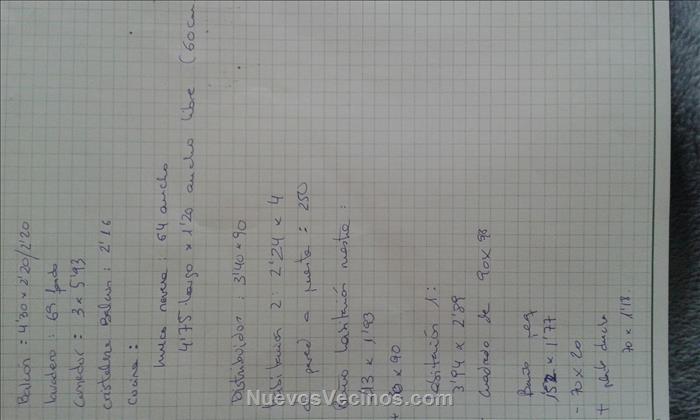 Balcón : 4'30 x 2'20/2'20
lavadero : 69 fondo
Comedor : 3 x 5'93
cristalera Balcon : 2'16
Cocina :
hueco nevera : 64 ancho
4'75 largo x 1'20 ancho libre (60cm
Distribuidor : 3'40 x 90
Habitación 2 : 2'24 x 4
de pared a puerta : 250
Baño habitación nuestra :
13 x 1'93
+ 90 x 90
abitación 1 :
3'94 x 2'89
cuadrado de 90 x 98
Baño peq
x 1'77
- 70 x 20
+ plato ducha
70 x 1'18
NuevosVecinos.com